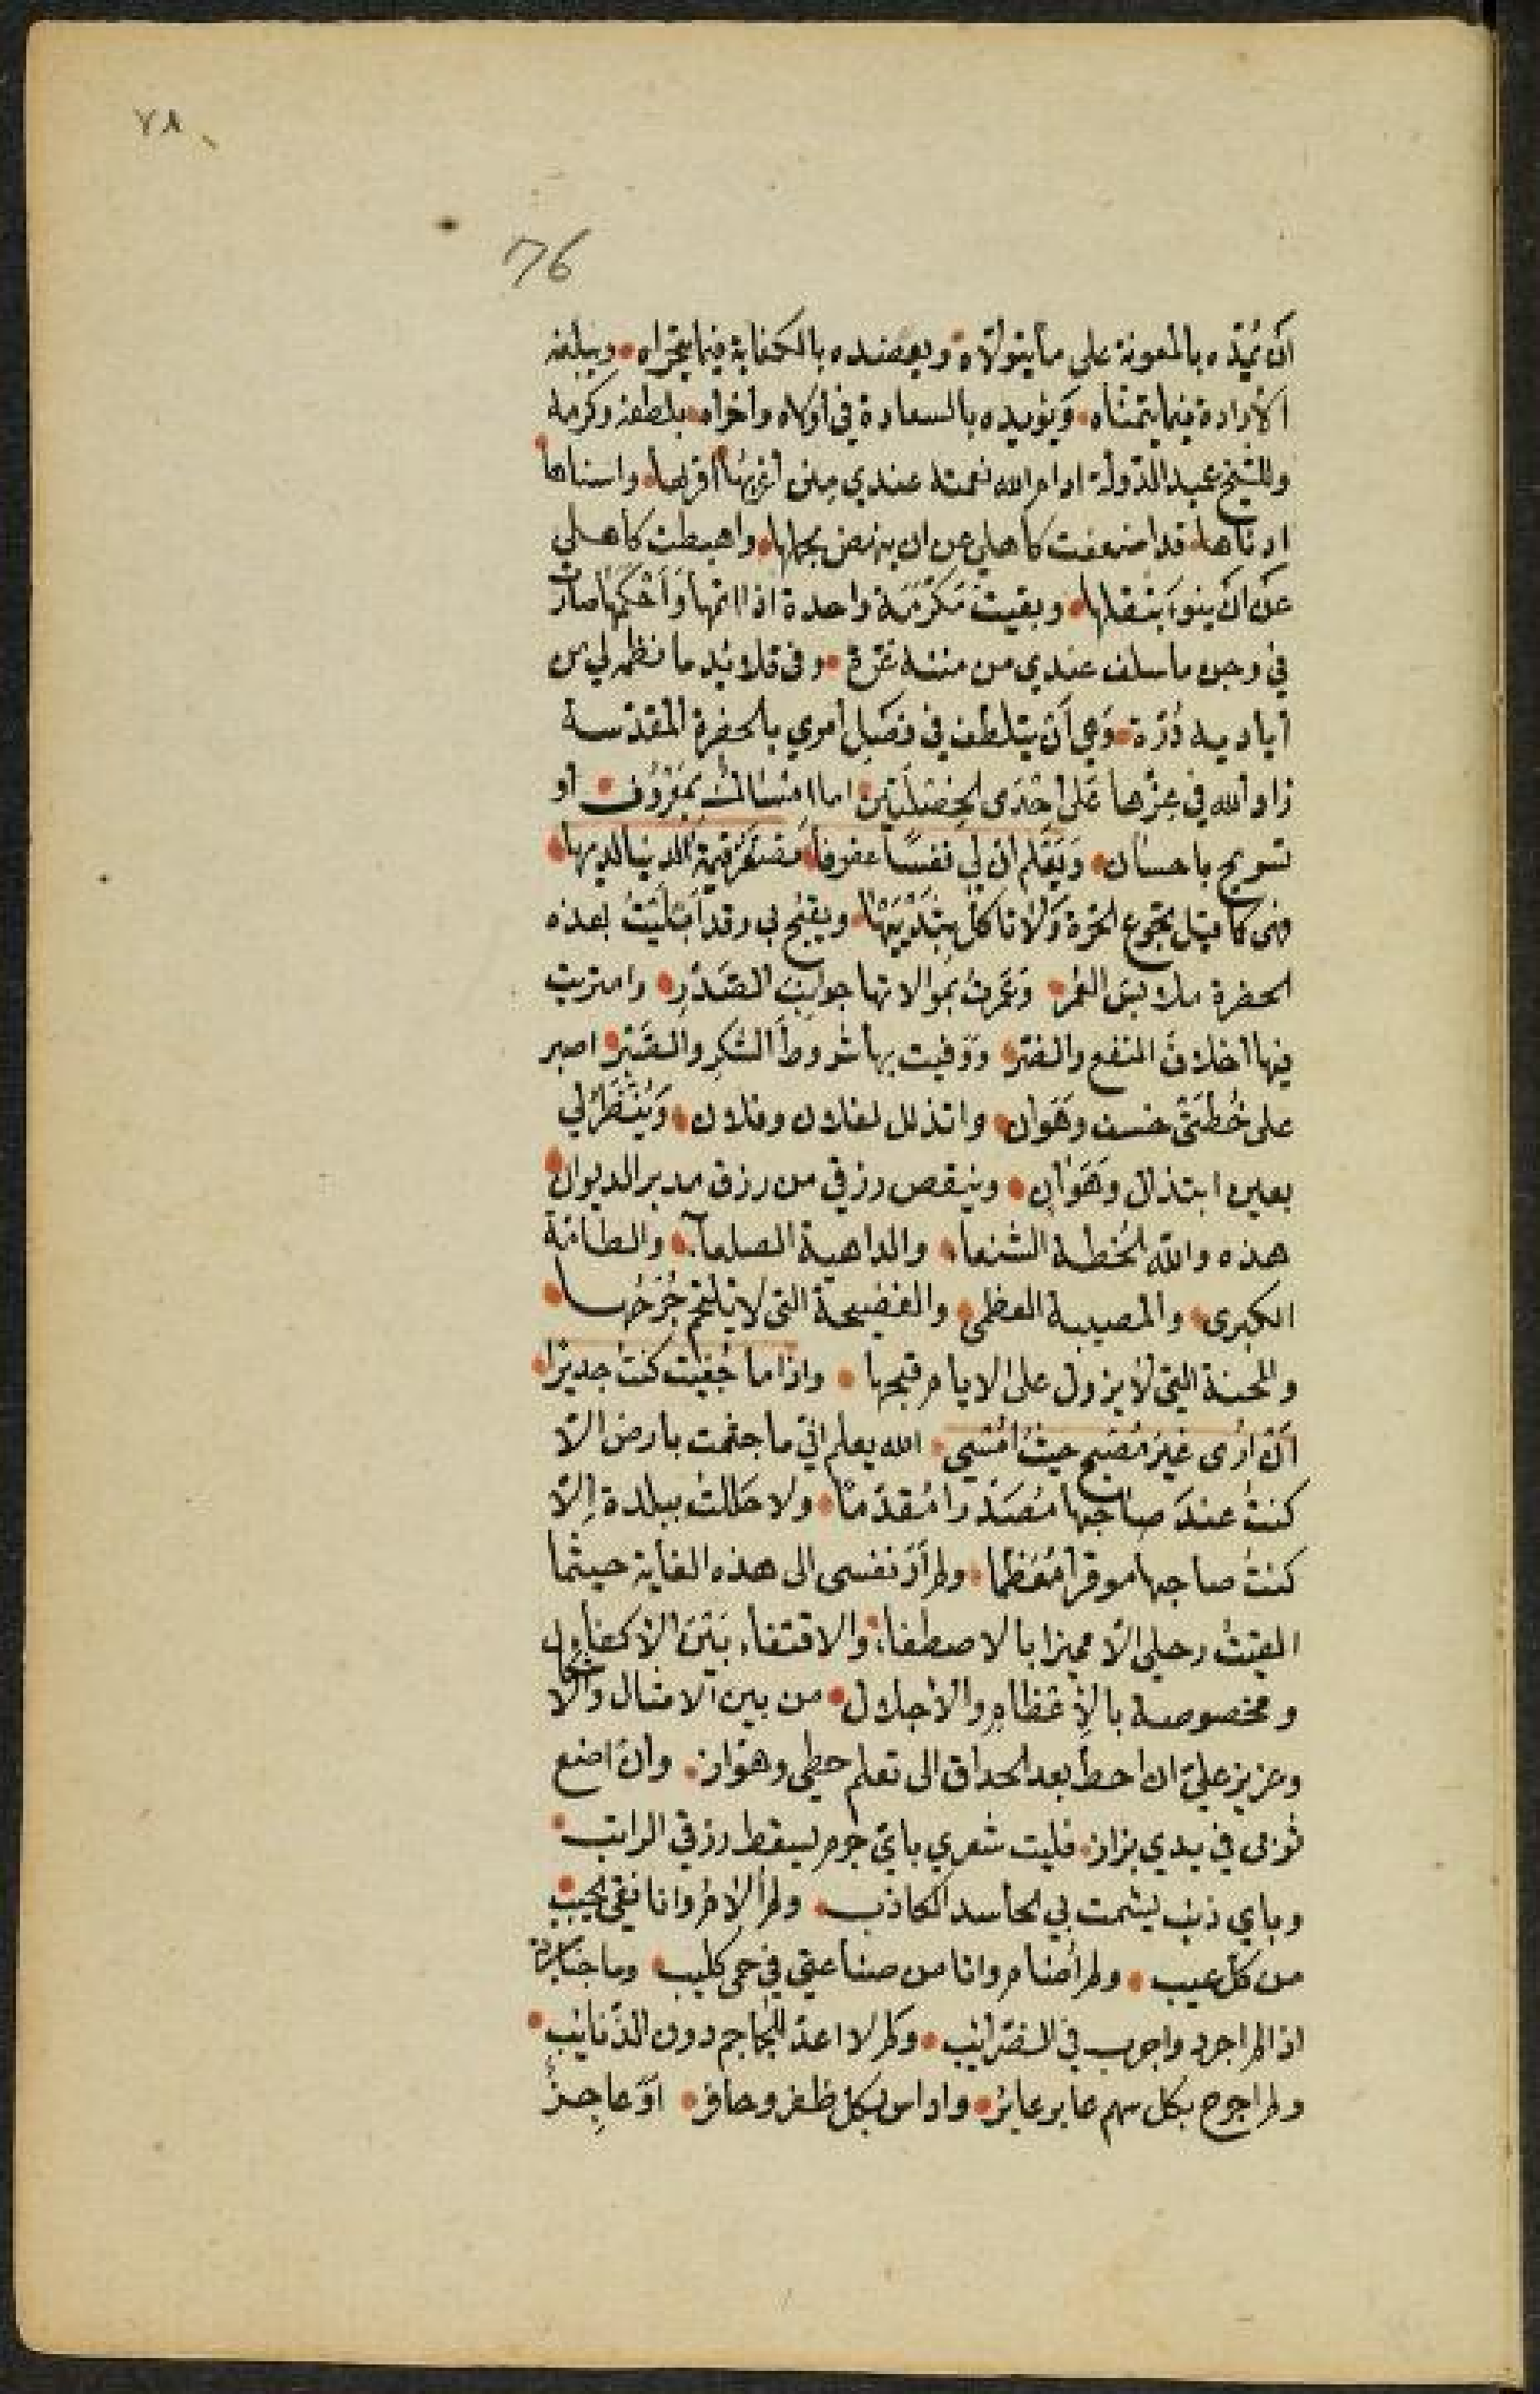 ٧٨
76
أن يمُدّه بالمعونة على ما يتولّاه ويعضده بالكفاية فيما يتحرّاه ويبلغه
الأرادة فيما يتمناه وَيؤيده بالسعادة في أولاه وأخراه بلطفه وكرمه
وللشيخ عميد الدّولة ادام الله نعمته عندي منن أغربُها أقربُها واسناها
ادناها قد اضعفت كاهلي عن ان ينهض بحملها واهبطت كاهلي
عن أن ينوءَ بثقلها وبقيتْ مَكرُمَة واحدة اذا اتمها وَأحكمَها صارت
في وجه ما سلف عندي من مننه غرّة وفي قلائد ما نظمه لي من
أياديه دُرّة وَهي أن يتلطف في فصَل أمري بالحضرة المقدّسة
زاد الله في عِزّها عَلى احْدَى الخصْلَتين اما امْسَاكٌ بمَعْرُوف أو
تسريح باحسان وَيَعْلم ان لي نفسًا عزوفا مستحْقَرة الدنيا لديها
فهى كما قيل تجوع الحرّة وَلا تاكل بثدْيَيْهَا ويقبح بي وقد أبْلَيْتُ بهذه
الحضرة ملابسَ العُمر وَعَمرتُ بمَوالاتها جوانبَ الصَدْر وامتريت
فيها أخلافَ النفع والضرّ ووفيت بها شروطَ الشكر والصَبْر اصبر
على خُطتَىْ خسف وهَوَان واتذلل لفلان وفلان وَيُنْظَرُ لي
بعين ابتذال وهَوَان وينقص رزقي من رزق مدبر الديوان
هذه والله الخُطة الشنعاء والداهية الصلعآء والطامّة
الكبرى والمصيبة العظمى والفضيحة التى لا يلتئم جُرحُها
والمحنة التي لا يزول على الايام قبحها واذا ما جُفيْت كنتُ جديرًا
أنْ أرَى غيْرَ مُصْبح حيْثُ امْسي الله يعلم انّي ما جثمت بارض الّا
كنتُ عندَ صاحبها مُصَدّرا مُقدّمًا ولا حَللتُ ببلدة إلّا
كنتُ صاحبها موقرا مُعَظما ولم أرَ نفسى الى هذه الغاية حيثما
القيتُ رحلى الّا مميزا بالاصطفاء والاقتفاء بَيْنَ الأكفاء
ومخصوصة بالإعْظام والأجلال من بين الامثال والأشكال
وعزيز عليّ ان احط بعد الحذاق الى تعلم حطي وهوّاز وانْ اضع
ثوبى في يدي بزاز فليت شعري بايّ جرم يسقط رزقي الراتب
وباي ذنب يشمت بي الحاسد الكاذب ولم ألام وانا نقي الجيب
من كل عيب ولم أضام وانا من صناعتي في حمى كليب وما جنايتي
اذا لم اجرد واجرب في الضرائب ولم لا اعدّ للجماجم دون الذّنائب
ولم اجرح بكل سهم عابر عائر واداس بكل ظفر وحافر أوَ عاجزٌ